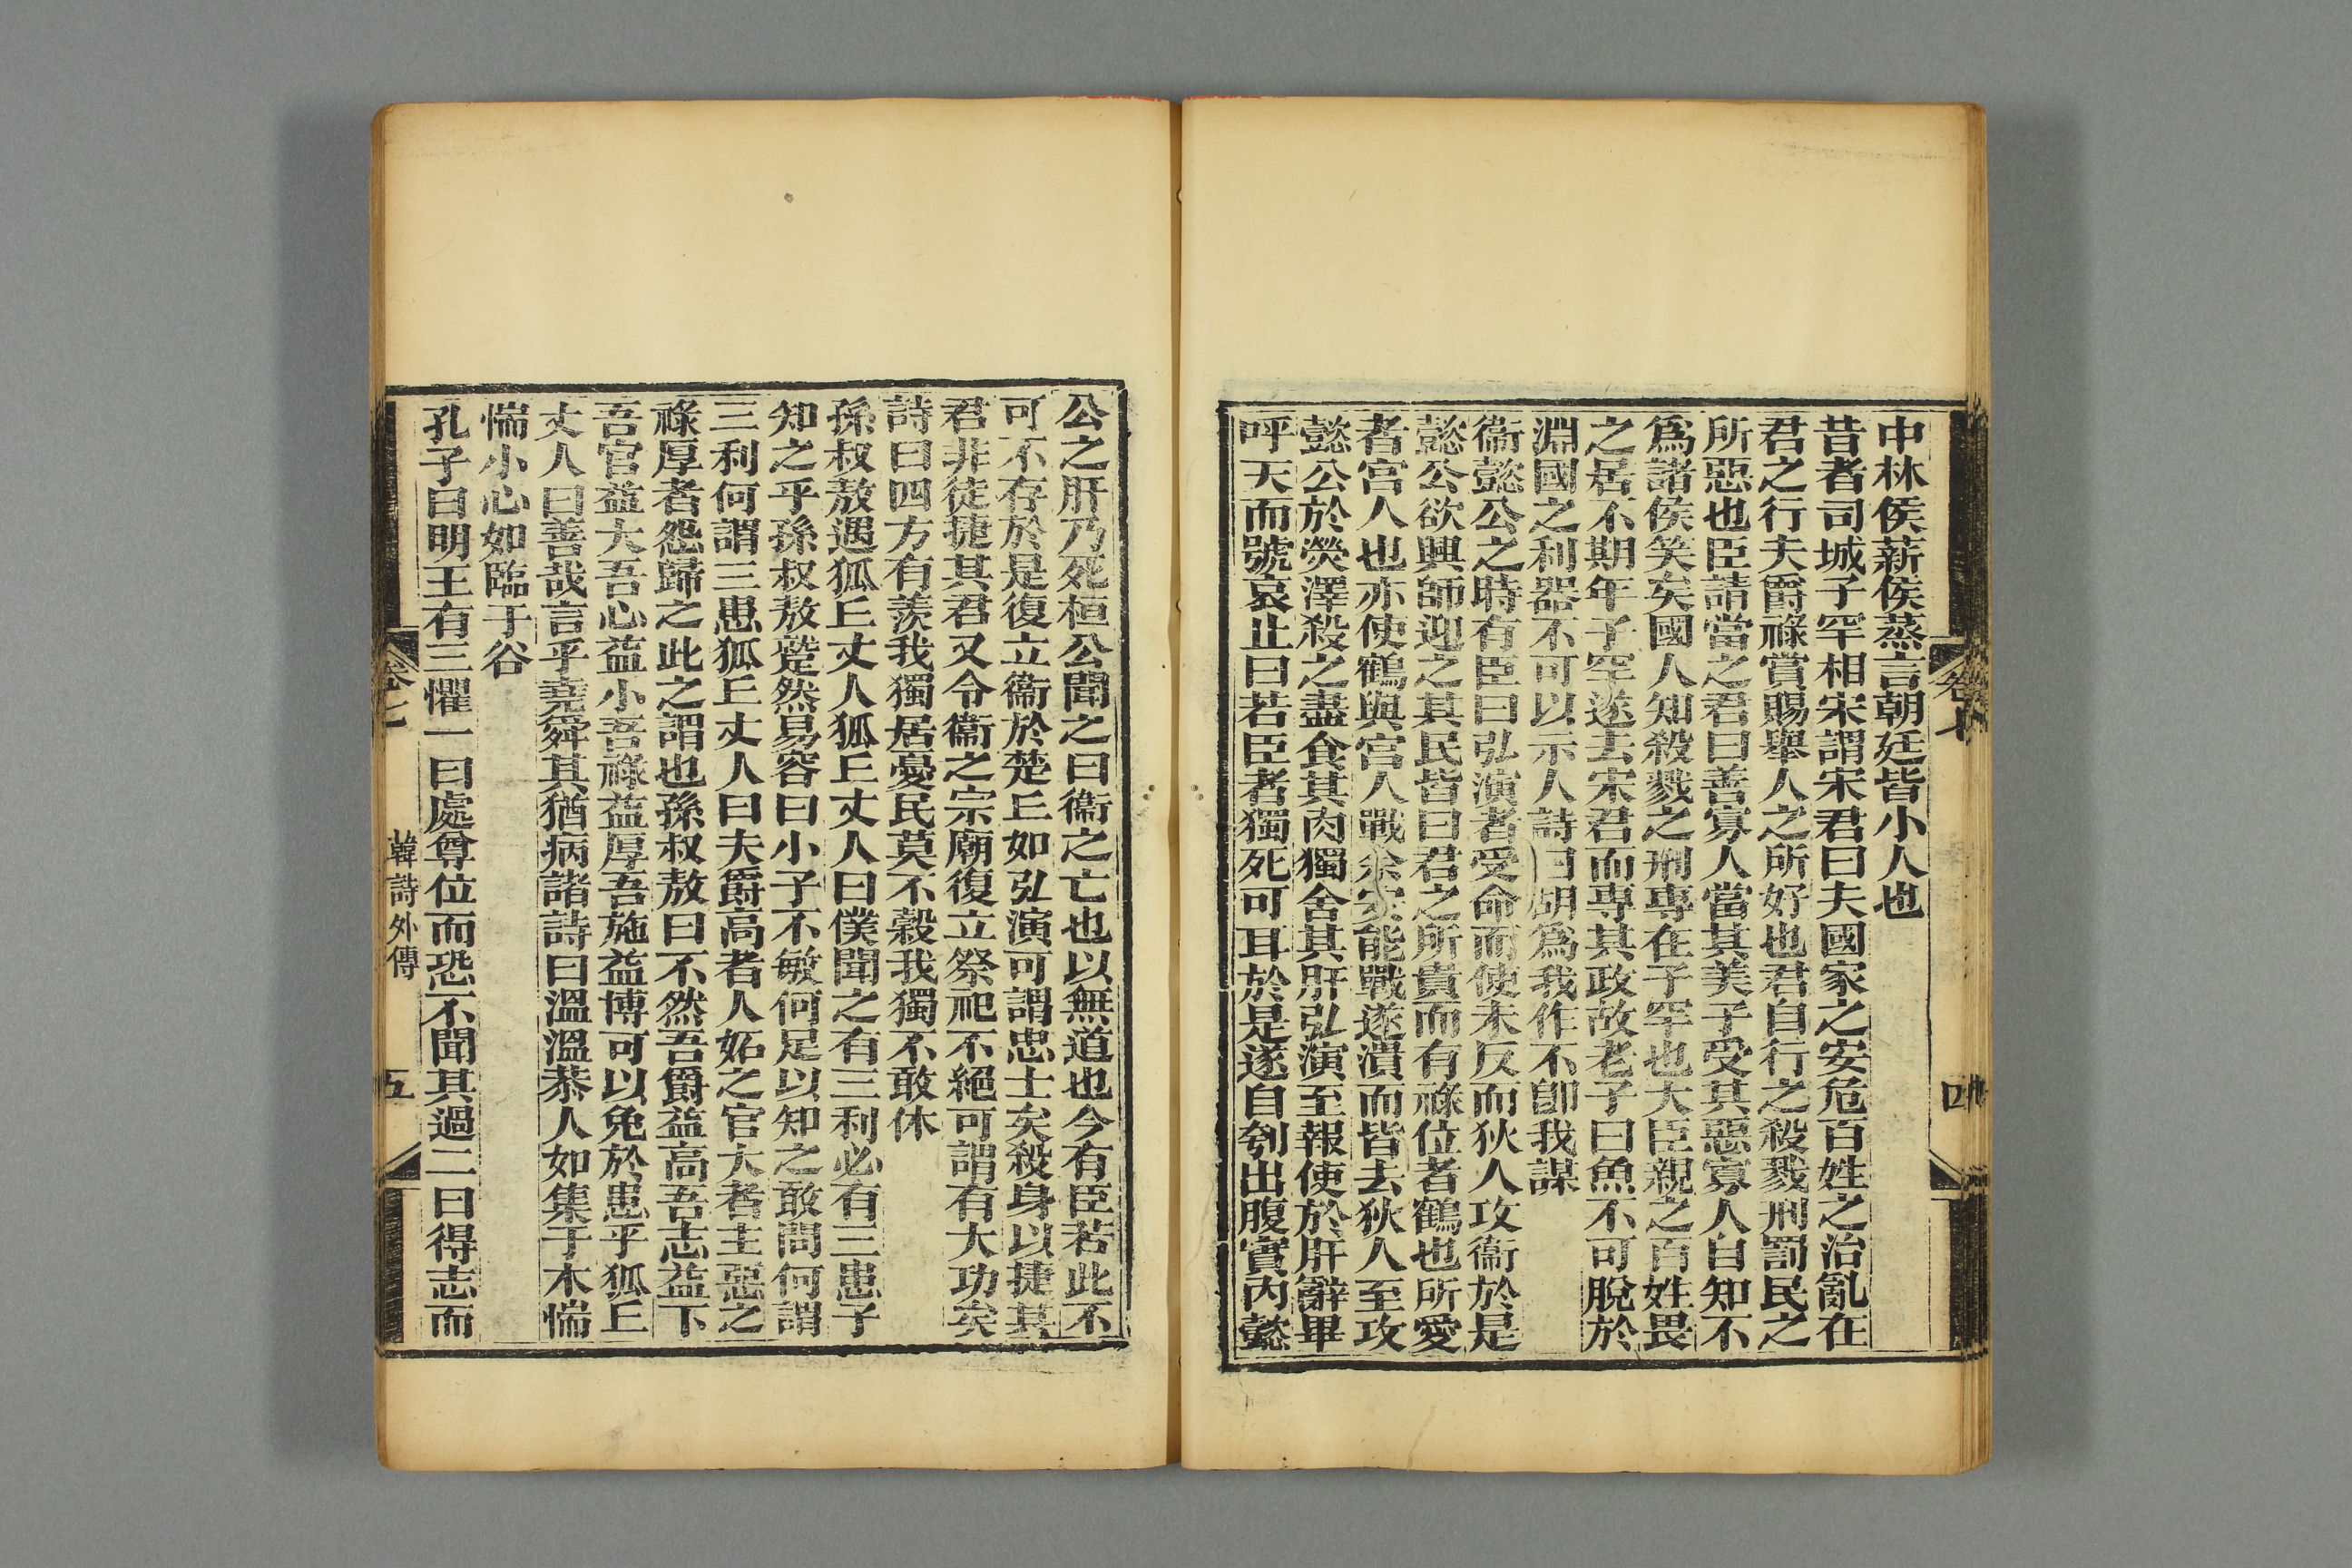 中林侯薪侯蒸言朝廷皆小人也
昔者司城子罕相宋謂宋君曰夫國家之安危百姓之治亂在
君之行夫爵祿賞賜舉人之所好也君自行之殺戮刑罰民之
所惡也臣請當之君曰善寡人當其美子受其惡寡人自知不
爲諸侯笑矣國人知殺戮之刑專在子罕也大臣親之百姓畏
之居不期年子罕遂去宋君而專其政故老子曰魚不可脫於
淵國之利器不可以示人詩曰胡爲我作不卽我謀
衞懿公之時有臣曰弘演者受命而使未反而狄人攻衞於是
懿公欲興師迎之其民皆曰君之所貴而有祿位者鶴也所愛
者宮人也亦使鶴與宮人戰余安能戰遂潰而皆去狄人至攻
懿公於熒澤殺之盡食其肉獨舍其肝弘演至報使於肝辭畢
呼天而號哀止曰若臣者獨死可耳於是遂自刳出腹實內懿
卷七
四
公之肝乃死桓公聞之曰衞之亡也以無道也今有臣若此不
可不存於是復立衞於楚丘如弘演可謂忠士矣殺身以捷其
君非徒捷其君又令衞之宗廟復立祭祀不絕可謂有大功矣
詩曰四方有羨我獨居憂民莫不穀我獨不敢休
孫叔敖遇狐丘丈人狐丘丈人曰僕聞之有三利必有三患子
知之乎孫叔敖蹵然易容曰小子不敏何足以知之敢問何謂
三利何謂三患狐丘丈人曰夫爵高者人妬之官大者主惡之
祿厚者怨歸之此之謂也孫叔敖曰不然吾爵益高吾志益下
吾官益大吾心益小吾祿益厚吾施益博可以免於患乎狐丘
丈人曰善哉言乎堯舜其猶病諸詩曰溫溫恭人如集于木惴
惴小心如臨于谷
孔子曰明王有三懼一曰處尊位而恐不聞其過二曰得志而
卷七
韓詩外傳
五